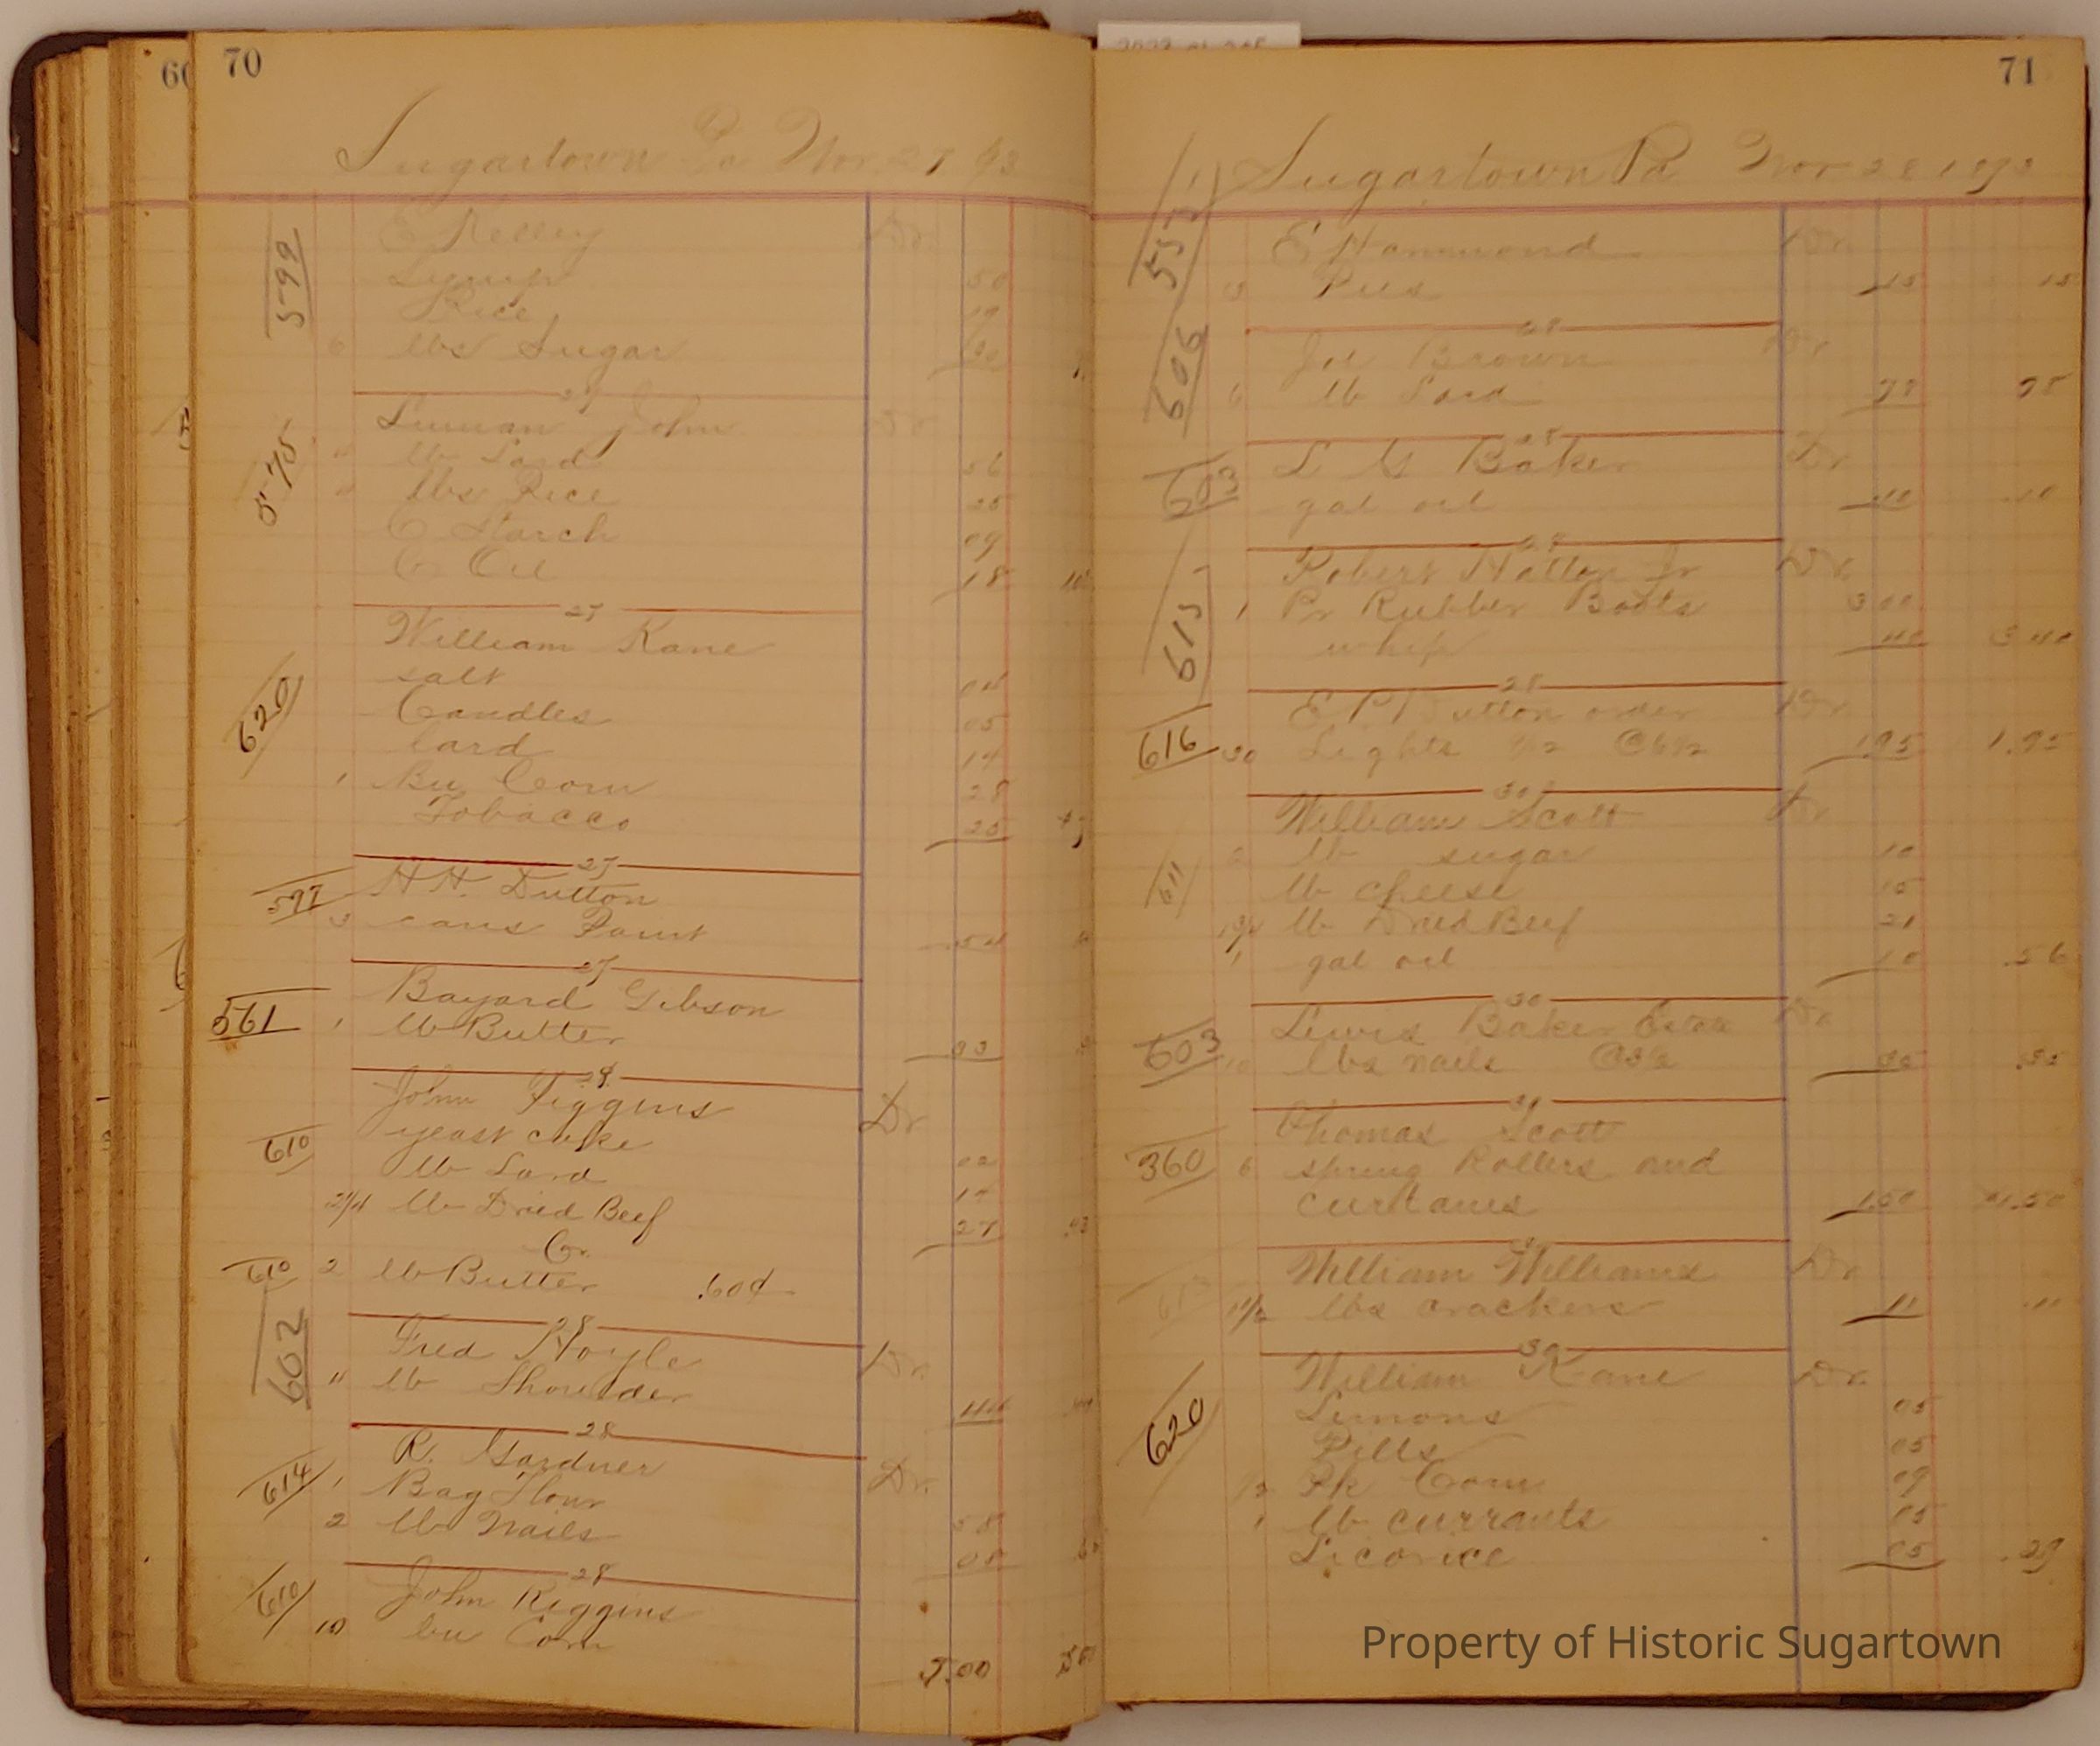 60
70
Sugartown Pa Nov. 27 93
599
E Kelley Dr.
Syrup 50
Rice 19
6 lbs Sugar
27
575
Luman John Dr
lb Lard 56
lbs Rice 25
C Starch 09
C Oil 18
27
620
William Kane
salt 04
Candles 05
lard 14
1 Bu Corn 28
Tobacco 25
27
597
H H. Dutton
3 cans Paint 54
27
561
Bayard Gibson
1 lb Butter 33
28
John Riggins Dr
610
yeast cake 02
lb Lard 14
2 1/4 lb Dried Beef 27 .43
Cr.
610 2 lb Butter .60¢
28
602
Fred Hoyle Dr.
4 lb Shoulder 44
28
R. Gardner Dr.
614 1 Bag Flour 58
2 lb Nails 08
28
610
John Riggins
10 bu Corn
5.00
71
Sugartown Pa Nov 28 1893
557
E Hammond Dr.
3 Pies 15 15
28
606
Joe Brown Dr
6 lb Lard 78 78
28
603
L G Baker Dr
gal oil 10 .10
28
615
Robert Hatton Jr Dr.
1 Pr Rubber Boots 3 00
whip 40 3 40
28
616
E P Dutton order Dr
30 Lights @ 6 1/2 1.95 1.95
30
611
William Scott Dr
2 lb sugar 10
lb cheese 15
lb Dried Beef 21
1 gal oil 10 .56
30
603
Lewis Baker Dr.
10 lbs nails @3½ 35 .35
360
Thomas Scott
6 spring Rollers and
curtains 1.50 1.50
William Williams Dr.
1 1/2 lbs crackers 11 .11
30
620
William Kane Dr.
Lemons 05
Pills 05
1/2 Pk Corn 09
1 lb currants 05
Licorice 05 .29
Property of Historic Sugartown